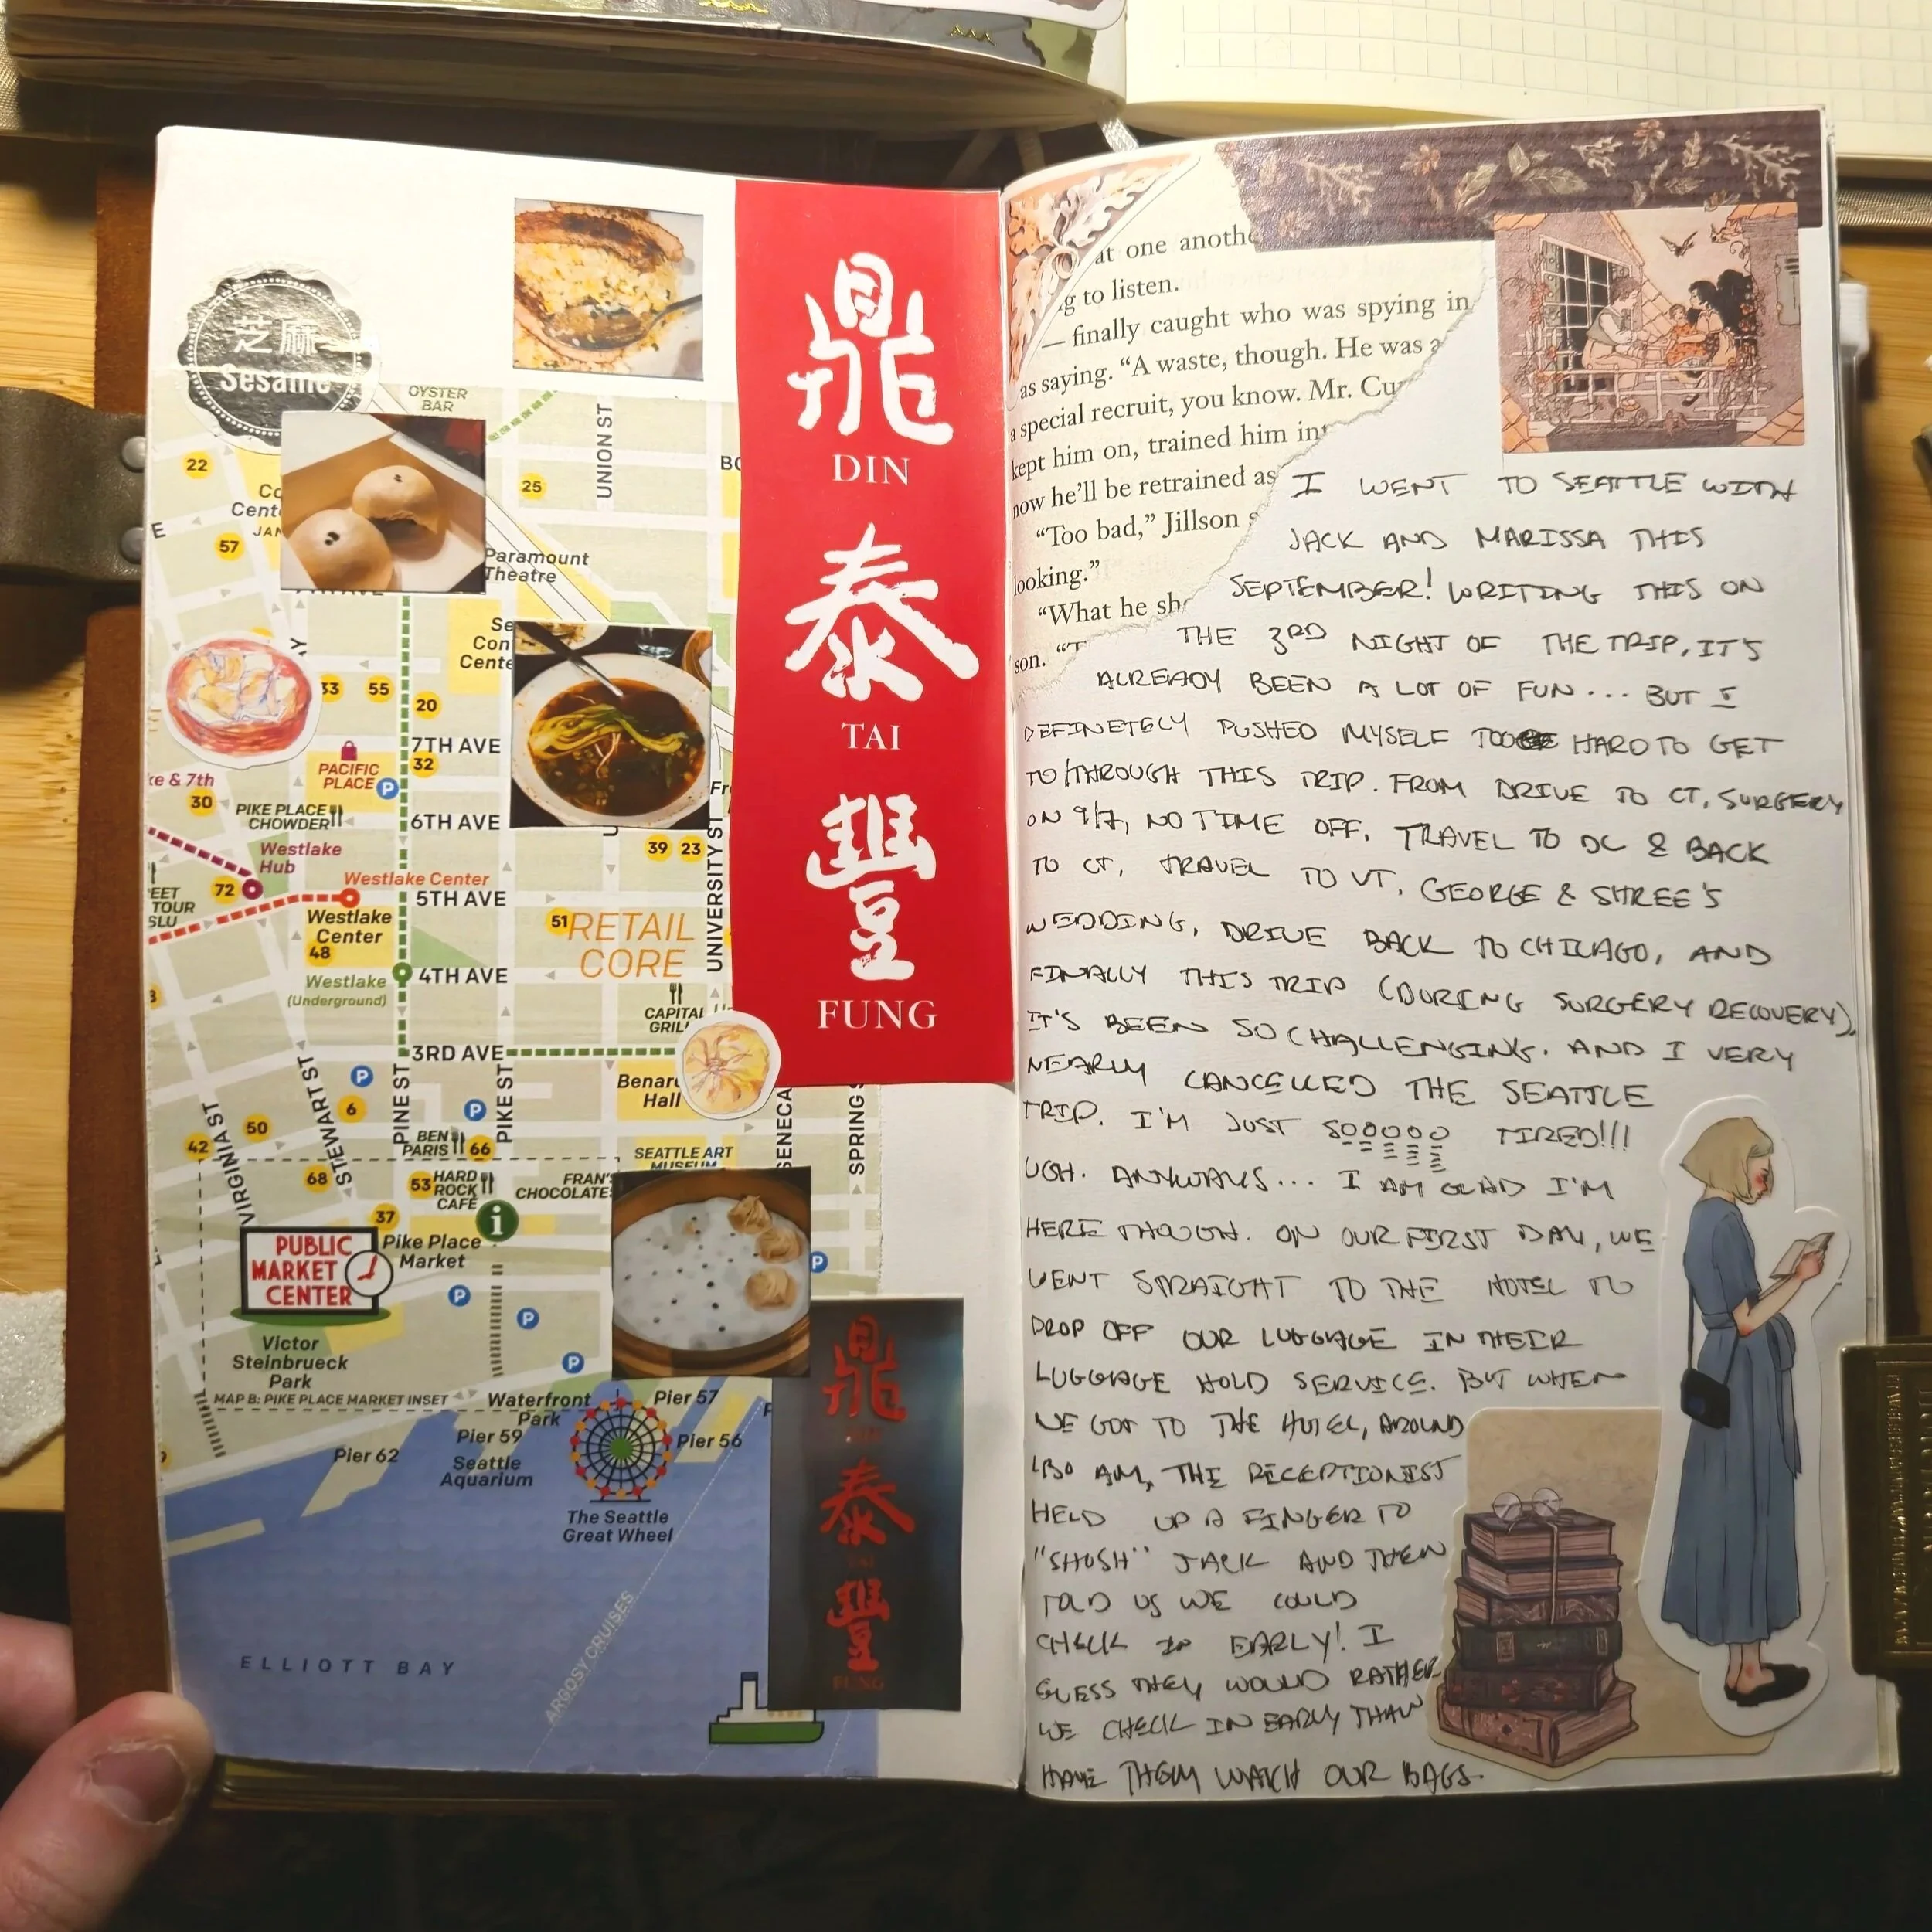 芝麻
Sesame
OYSTER
BAR
UNION ST
22
25
57
Paramount
Theatre
33
55
20
7TH AVE
32
PACIFIC
PLACE
P
ke & 7th
30
PIKE PLACE
CHOWDER
6TH AVE
39
23
UNIVERSITY ST
Westlake
Hub
72
Westlake Center
5TH AVE
EET
TOUR
SLU
Westlake
Center
48
51
RETAIL
CORE
Westlake
(Underground)
4TH AVE
CAPITAL
GRILL
3RD AVE
P
6
50
42
VIRGINIA ST
STEWART ST
PINE ST
PIKE ST
P
SENECA
SPRING S
Hall
BEN
PARIS
66
SEATTLE ART
MUSEUM
68
53
HARD
ROCK
CAFÉ
FRAN'S
CHOCOLATES
37
i
PUBLIC
MARKET
CENTER
Pike Place
Market
P
P
P
P
Victor
Steinbrueck
Park
MAP B: PIKE PLACE MARKET INSET
Waterfront
Park
Pier 57
Pier 62
Pier 59
Pier 56
Seattle
Aquarium
The Seattle
Great Wheel
ELLIOTT BAY
ARGOSY CRUISES
鼎
DIN
泰
TAI
豐
FUNG
鼎
泰
TAI
豐
FUNG
at one anothe
g to listen.
— finally caught who was spying in
as saying. “A waste, though. He was a
a special recruit, you know. Mr. Cu
kept him on, trained him int
now he’ll be retrained as
“Too bad,” Jillson s
looking.”
“What he sh
son. “T
I WENT TO SEATTLE WITH
JACK AND MARISSA THIS
SEPTEMBER! WRITING THIS ON
THE 3RD NIGHT OF THE TRIP, IT'S
ALREADY BEEN A LOT OF FUN... BUT I
DEFINETELY PUSHED MYSELF TOO HARD TO GET
TO/THROUGH THIS TRIP. FROM DRIVE TO CT, SURGERY
ON 9/7, NO TIME OFF, TRAVEL TO DC & BACK
TO CT, TRAVEL TO VT, GEORGE & SHREE'S
WEDDING, DRIVE BACK TO CHICAGO, AND
FINALLY THIS TRIP (DURING SURGERY RECOVERY).
IT'S BEEN SO CHALLENGING. AND I VERY
NEARLY CANCELLED THE SEATTLE
TRIP. I'M JUST SOOOOO TIRED!!!
UGH. ANYWAYS... I AM GLAD I'M
HERE THOUGH. ON OUR FIRST DAY, WE
WENT STRAIGHT TO THE HOTEL TO
DROP OFF OUR LUGGAGE IN THEIR
LUGGAGE HOLD SERVICE. BUT WHEN
WE GOT TO THE HOTEL, AROUND
AM, THE RECEPTIONIST
HELD UP A FINGER TO
"SHUSH" JACK AND THEN
TOLD US WE COULD
CHECK IN EARLY! I
GUESS THEY WOULD RATHER
WE CHECK IN EARLY THAN
HAVE THEM WATCH OUR BAGS.